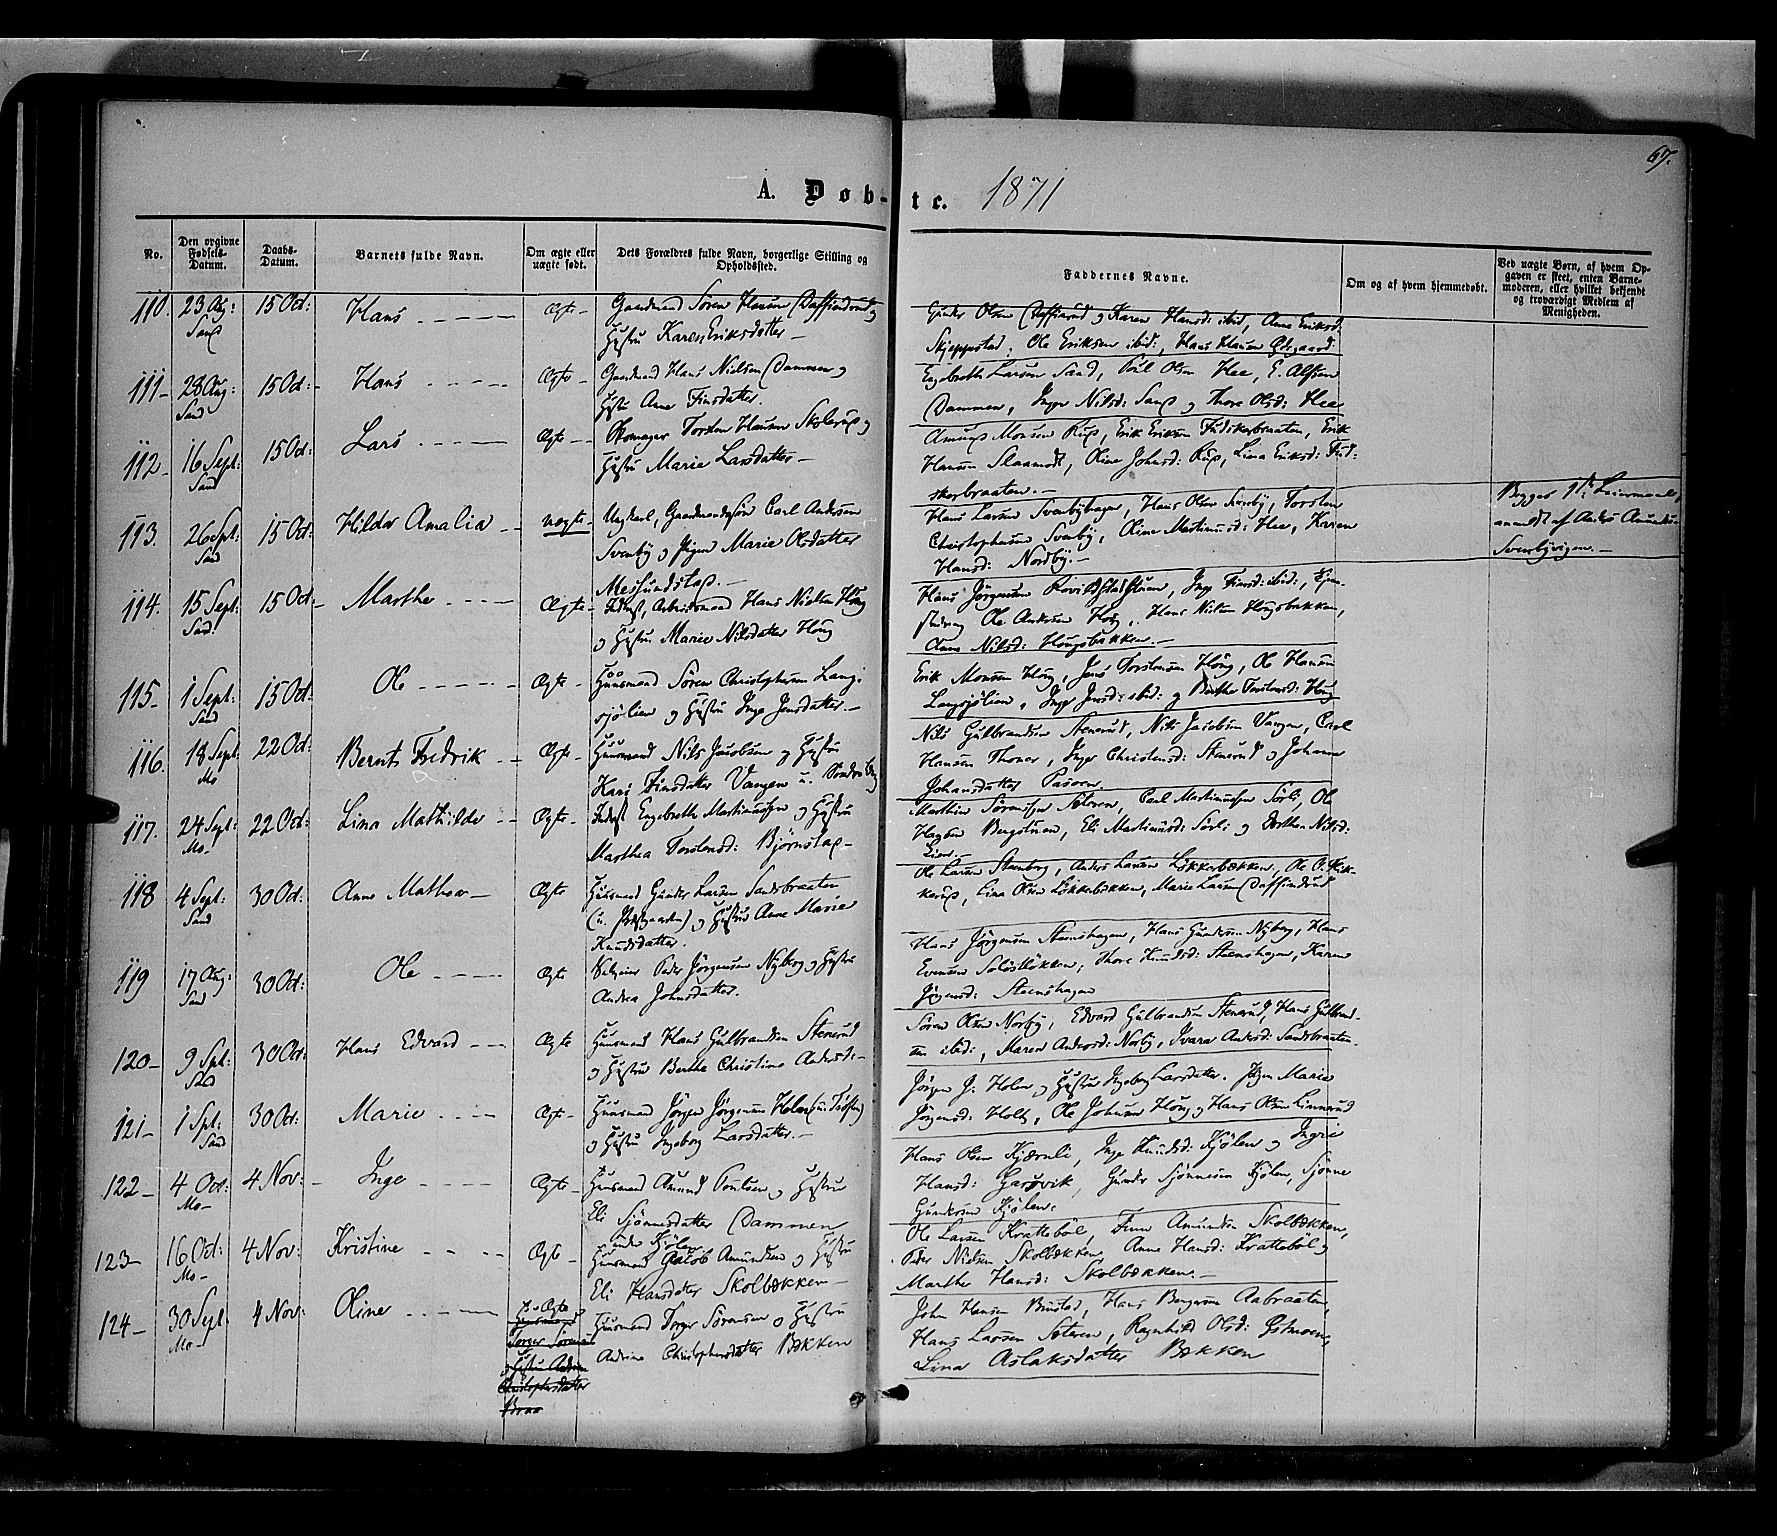 67.
A. Døb-te. 1871
No.
Den opgivne Fødsels-Datum.
Daabs-Datum.
Barnets fulde Navn.
Om ægte eller uægte født.
Dets Forældres fulde Navn, borgerlige Stilling og Opholdssted.
Faddernes Navne.
Om og af hvem hjemmedøbt.
Ved uægte Børn, af hvem Opgaven er skeet, enten Barnemoderen, eller hvilket bekjendt og troværdigt Medlem af Menigheden.
110. 23 Aug: 15 Oct: Hans Ægte Gaardmand Søren Hansen og
Hustru Karen Eriksdatter
Gunder Olsen og Karen Hansd: ibid, Anne Eriksd:
Skjeppestad, Ole Eriksen ibid:, Hans Hansen Ødegaard
111 28 Aug: Sand 15 Oct: Hans Ægte Gaardmand Hans Nielsen Dammen og
Hustru Anne Finsdatter.
Engebreth Larsen Sand, Poul Olsen Hee, E. Alfsen
Dammen, Inger Nilsd: og Thore Olsd: Hee
112 16 Sept: Sand 15 Oct: Lars Ægte Skomager Torsten Hansen og
Hustru Marie Larsdatter
Amund Monsen Rud, Erik Eriksen Fuskerbraaten, Erik
Hansen Slaamodt, Oline Johnsd: Rud, Lina Eriksd: Fus-
kerbraaten.
113. 26 Sept: Sand 15 Oct: Hilda Amalia uægte Ungkarl, Gaardmandssøn Carl Andersen
Svenby og Pigen Marie Olsdatter
Hans Larsen Svenbybagen, Hans Olsen Svenby, Torsten
Christophersen Svenby, Oline Martinusd: Hee, Karen
Hansd: Nordby.
Begges 1ste Leiermaal,
anmeldt af Anders Amundsen
Svenbyvigen.
114. 15 Sept: Sand 15 Oct: Marthe Ægte Inderst, Arbeidsmand Hans Nielsen Houg
og Hustru Marie Nilsdatter Houg
Hans Jørgensen, Inge Finsd: ibid:,
Ole Andersen Houg, Hans Nielsen Hougsbakken,
Anne Nilsd: Hougsbakken.
115 1 Sept: Sand 15 Oct: Ole Ægte Huusmand Søren Christophersen Lang-
sjølien og Hustru Inge Jensdatter.
Erik Monsen Houg, Jens Torstensen Houg, Ole Hansen
Langsjølien, Inger Jensd: ibid: og Berthe Torstensd: Houg
116. 18 Sept: Mo 22 Oct: Bernt Fredrik Ægte Huusmand Nils Jacobsen og Hustru
Kari Finsdatter Vangen u.
Nils Gulbrandsen Stenerud, Nils Jacobsen Vangen, Carl
Hansen Thoner, Inger Christensd: Stenerud og Johanne
Johansdatter
117. 24 Sept: Mo 22 Oct: Lina Mathilde Ægte Inderst Engebreth Martinussen og Hustru
Marthea Torstensd: Bjørnstad
Matthias Sørensen Sæteren, Carl Martinussen Sørli, Ole
Hagben Bergstuen, Eli Martinusd: Sørli og Dorthea Nilsd:
Lien.
118 4 Sept: Sand 30 Oct: Anne Mathea Ægte Huusmand Gunder Larsen Sandsbraaten
(u. Præstgaarden) og Hustru Anne Marie
Knudsdatter.
Ole Larsen Stenberg, Anders Larsen Løkkerbækken, Ole O.
Lina Olsen Løkkebækken, Marie Larsen
119 17 Aug: Sand 30 Oct: Ole Ægte Selveier Peder Jørgensen Nyberg og Hustru
Andrea Johnsdatter.
Hans Jørgensen Steenshagen, Hans Gundersen Nyberg, Hans
Evensen, Thore Knudsd: Steenshagen, Karen
Jørgensd: Steenshagen
120 9 Spt: Sand 30 Oct: Hans Edvard Ægte Huusmand Hans Gulbrandsen Stenerud
og Hustru Berthe Christine Andersd:
Søren Olsen Norby, Edvard Gulbrandsen Stenerud, Hans Gulbrand-
sen ibid:, Maren Andersd: Norby, Ivara Andersd: Sandsbraaten
121 1 Spt: Sand 30 Oct: Marie Ægte Huusmand Jørgen Jørgensen Holen
og Hustru Ingeborg Larsdatter.
Jørgen J. Holen og Hustru Ingeborg Larsdatter. Pigen Marie
Jørgensd: Holen, Ole Johnsen Houg og Hans Olsen Linnerud
122 4 Oct: Mo 4 Nov: Inge Ægte Huusmand Amund Poulsen og Hustru
Eli Sjønnesdatter Dammen
under Kjølen
Hans Olsen Kjærnli, Inge Knudsd: Kjølen og Ingri
Hansd: Garsvik, Gunder Sjønnesen Kjølen, Sjønne
Gundersen Kjølen.
123 16 Oct: Mo 4 Nov: Kristine Ægte Huusmand Jacob Amundsen og Hustru
Eli Hansdatter Skolbækken
Ole Larsen Krattebøl, Finn Amundsen Skolbækken,
Peder Nielsen Skolbækken, Anne Hansd: Krattebøl og
Marthe Hansd: Skolbækken.
124 30 Sept: Mo 4 Nov: Oline Ægte
Huusmand
Torger Sørensen
og Hustru Andrine
Christophersdatter
Huusmand Torger Sørensen og Hustru
Andrine Christophersdatter Bækken
John Hansen Bustad, Hans Bergersen Aabraaten,
Hans Larsen Sæteren, Ragnhild Olsd: Østmoen,
Lina Aslaksdatter Bækken